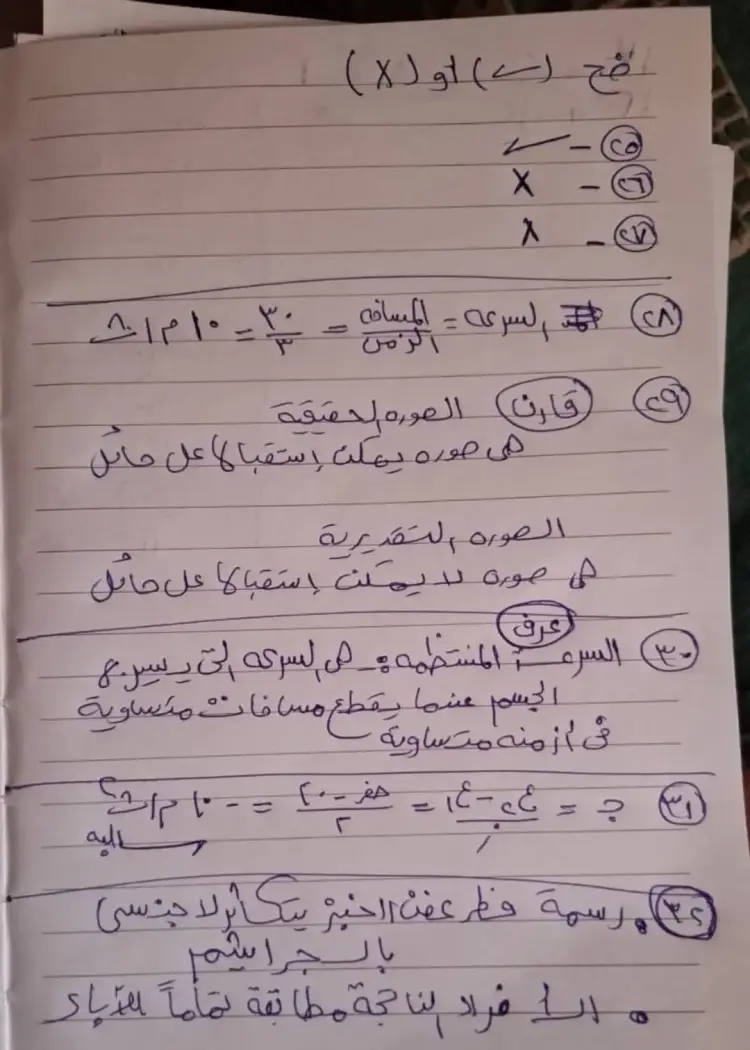 ضع (✓) أو (X)
٢٥ - ✓
٢٦ - X
٢٧ - X
٢٨ السرعه = المسافه / الزمن = ٣٠ / ٣ = ١٠ م/ث
٢٩ قارن الصوره الحقيقية
هى صوره يمكن إستقبالها على حائل
الصوره التقديرية
هى صوره لا يمكن إستقبالها على حائل
عرف
٣٠ السرعة المنتظمه :- هى السرعه التى يسير بها
الجسم عندما يقطع مسافات متساوية
فى أزمنه متساوية
٣١ جـ = ع٢ - ع١ / ز = صفر - ٢٠ / ٢ = - ١٠ م/ث٢
سالبه
٣٢ . رسمة فطر عفن الخبز يتكاثر لاجنسى
بالجراثيم
. الأفراد الناتجة مطابقة تماماً للأباء